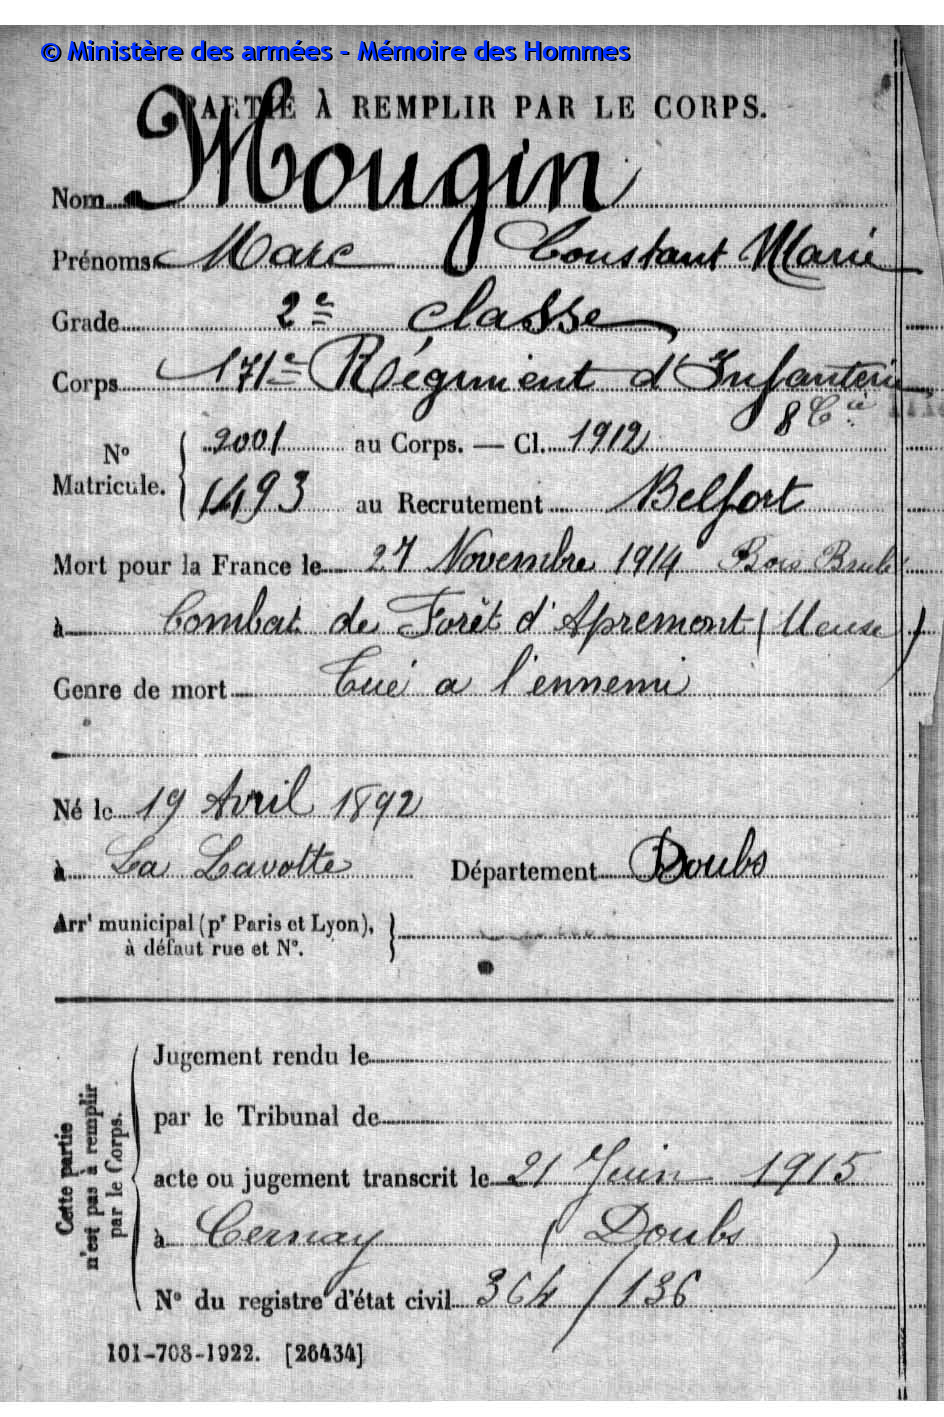 © Ministère des armées - Mémoire des Hommes
PARTIE À REMPLIR PAR LE CORPS.
Nom Mougin
Prénoms Marc Constant Marie
Grade 2e classe
Corps 171e Régiment d'Infanterie
8 Cie
No Matricule. 2001 au Corps. — Cl. 1912
1493 au Recrutement Belfort
Mort pour la France le 27 Novembre 1914 Bois Brulé
à Combat de Forêt d'Apremont (Meuse)
Genre de mort Tué a l'ennemi
Né le 19 Avril 1892
à La Lavotte Département Doubs
Arrt municipal (pr Paris et Lyon),
à défaut rue et N°.
Cette partie n'est pas à remplir par le Corps.
Jugement rendu le
par le Tribunal de
acte ou jugement transcrit le 21 Juin 1915
à Cernay (Doubs)
N° du registre d'état civil 364/136
101-708-1922. [26434]